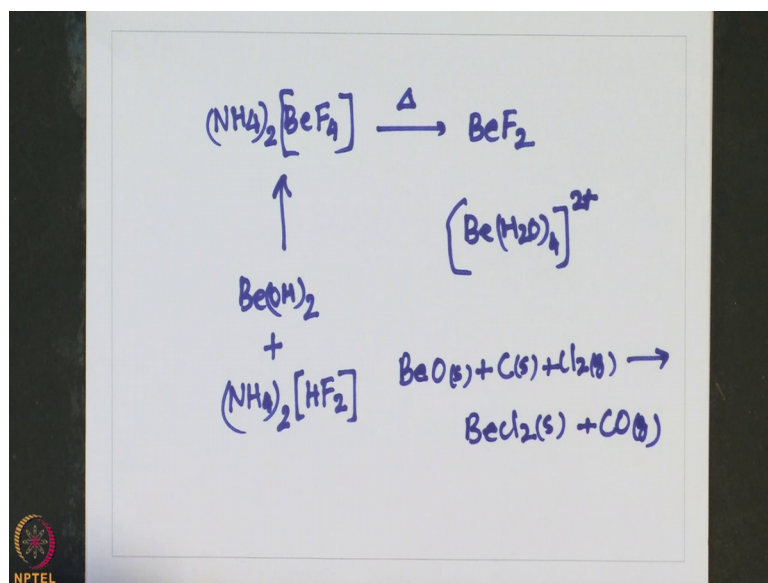 (NH4)₂[BeF₄] —Δ→ BeF₂
↑
[Be(H₂O)₄]²⁺
Be(OH)₂
+
(NH₄)₂[HF₂]
BeO(s) + C(s) + Cl₂(g) →
BeCl₂(s) + CO(g)
NPTEL